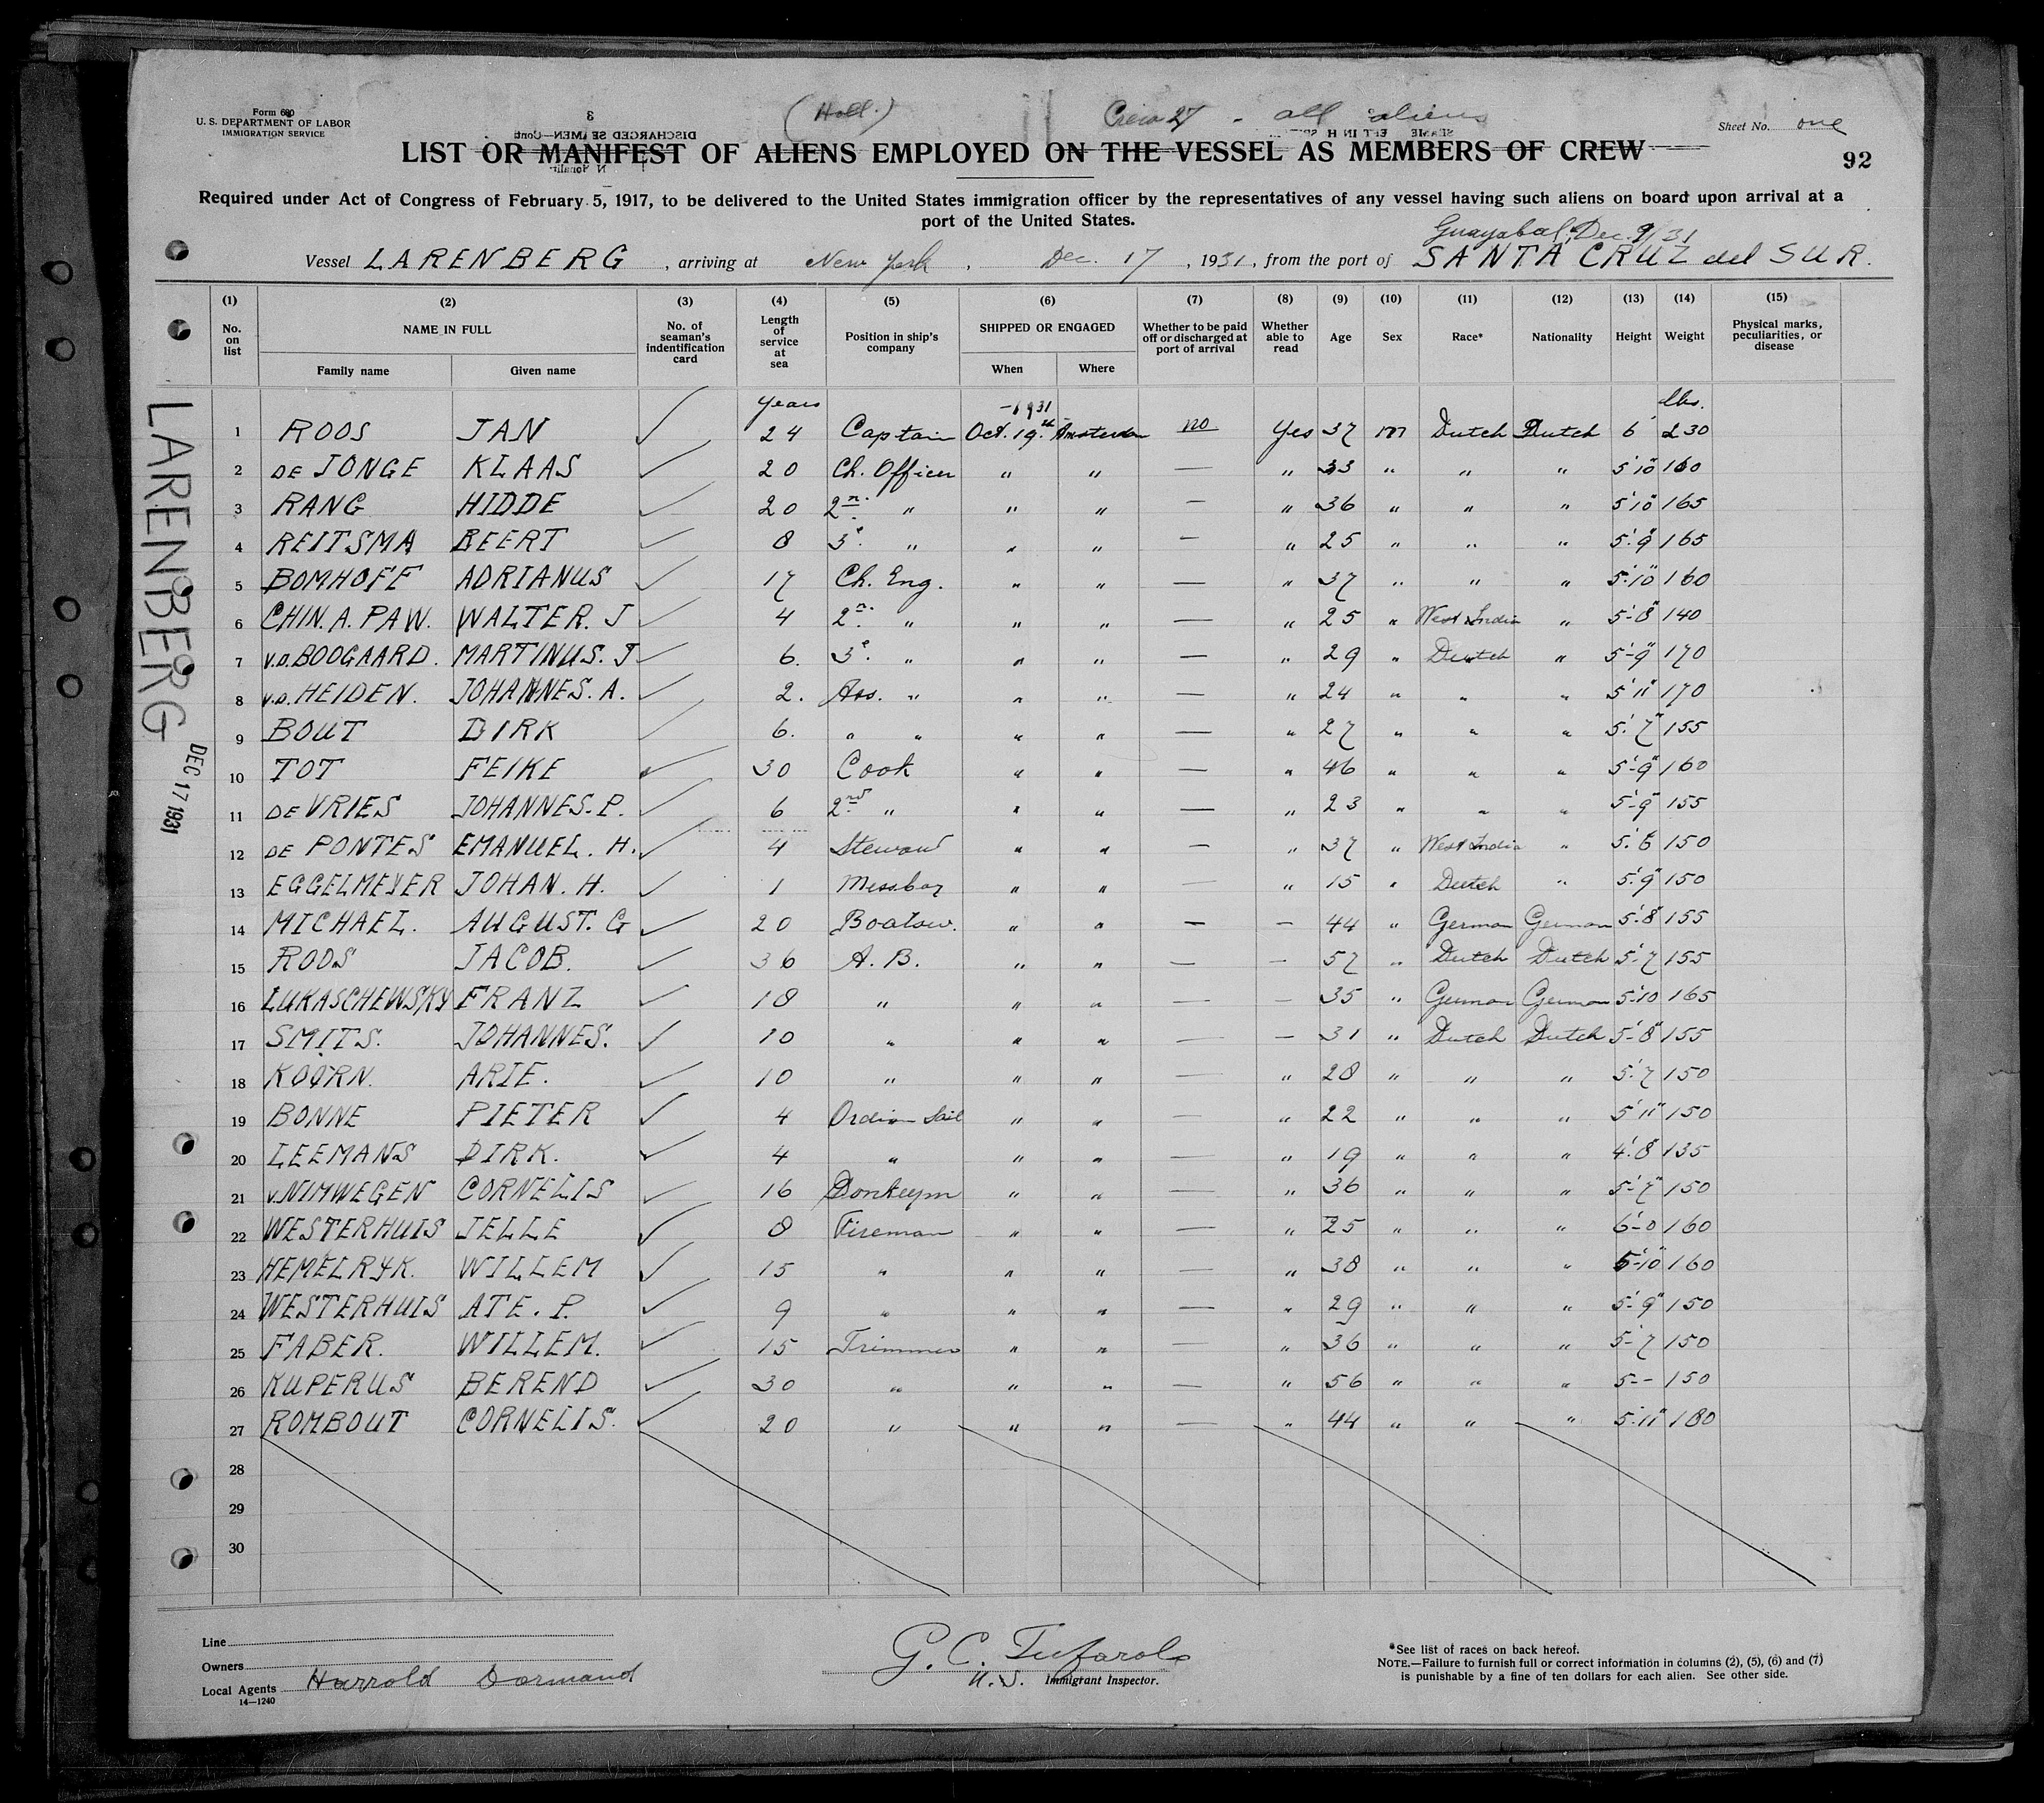 Form 680
U. S. DEPARTMENT OF LABOR
IMMIGRATION SERVICE
(Holl.)
Crew 27 - all aliens
Sheet No. one
LIST OR MANIFEST OF ALIENS EMPLOYED ON THE VESSEL AS MEMBERS OF CREW
92
Required under Act of Congress of February 5, 1917, to be delivered to the United States immigration officer by the representatives of any vessel having such aliens on board upon arrival at a
port of the United States.
Guayabal, Dec. 9/31
Vessel LARENBERG, arriving at New York, Dec. 17, 1931, from the port of SANTA CRUZ del SUR.
(1) (2) (3) (4) (5) (6) (7) (8) (9) (10) (11) (12) (13) (14) (15)
No. on list NAME IN FULL No. of seaman's indentification card Length of service at sea Position in ship's company SHIPPED OR ENGAGED Whether to be paid off or discharged at port of arrival Whether able to read Age Sex Race* Nationality Height Weight Physical marks, peculiarities, or disease
Family name Given name When Where
years -1931 lbs.
1 ROOS JAN 24 Captain Oct. 19th Amsterdam no Yes 37 m Dutch Dutch 6' 230
2 DE JONGE KLAAS 20 Ch. Officer " " — " 33 " " " 5'10" 160
3 RANG HIDDE 20 2n. " " " — " 36 " " " 5'10" 165
4 REITSMA BEERT 8 3e. " " " — " 25 " " " 5'.9" 165
5 BOMHOFF ADRIANUS 17 Ch. Eng. " " — " 37 " " " 5'.10" 160
6 CHIN. A. PAW. WALTER. J 4 2n. " " " — " 25 " West India " 5'-8" 140
7 v.D. BOOGAARD. MARTINUS. J 6. 3e. " " " — " 29 " Dutch " 5'-9" 170
8 v.D. HEIDEN. JOHANNES. A. 2. Ass. " " " — " 24 " " " 5'11" 170
9 BOUT DIRK 6. " " " " — " 27 " " " 5'.7" 155
10 TOT FEIKE 30 Cook " " — " 46 " " " 5'-9" 160
11 DE VRIES JOHANNES. P. 6 2nd " " " — " 23 " " " 5'-9" 155
12 DE PONTES EMANUEL. H. 4 Steward " " — " 37 " West India " 5'.6 150
13 EGGELMEYER JOHAN. H. 1 Messboy " " — " 15 " Dutch " 5'.9" 150
14 MICHAEL. AUGUST. G 20 Boatsw. " " — — 44 " German German 5'-8" 155
15 ROOS JACOB. 36 A. B. " " — — 57 " Dutch Dutch 5'-7 155
16 LUKASCHEWSKY FRANZ 18 " " " — — 35 " German German 5'-10 165
17 SMITS. JOHANNES. 10 " " " — — 31 " Dutch Dutch 5'-8" 155
18 KOORN. ARIE. 10 " " " — " 28 " " " 5'-7 150
19 BONNE PIETER 4 Ordin Sail " " — " 22 " " " 5'11" 150
20 LEEMANS DIRK. 4 " " " — " 19 " " " 4'.8" 135
21 v. NIMWEGEN CORNELIS 16 Donkeym " " — " 36 " " " 5'-7" 150
22 WESTERHUIS JELLE 8 Fireman " " — " 25 " " " 6'-0 160
23 HEMELRYK. WILLEM 15 " " " — " 38 " " " 5'-10" 160
24 WESTERHUIS ATE. P. 9 " " " — " 29 " " " 5'-9" 150
25 FABER. WILLEM. 15 Trimmer " " — " 36 " " " 5'-7 150
26 KUPERUS BEREND 30 " " " — " 56 " " " 5-- 150
27 ROMBOUT CORNELIS. 20 " " " — " 44 " " " 5'.11" 180
28
29
30
LARENBERG
DEC 17 1931
Line
Owners
Local Agents Harrold Dormand
14—1240
G. C.
U.S. Immigrant Inspector.
*See list of races on back hereof.
NOTE.—Failure to furnish full or correct information in columns (2), (5), (6) and (7)
is punishable by a fine of ten dollars for each alien. See other side.